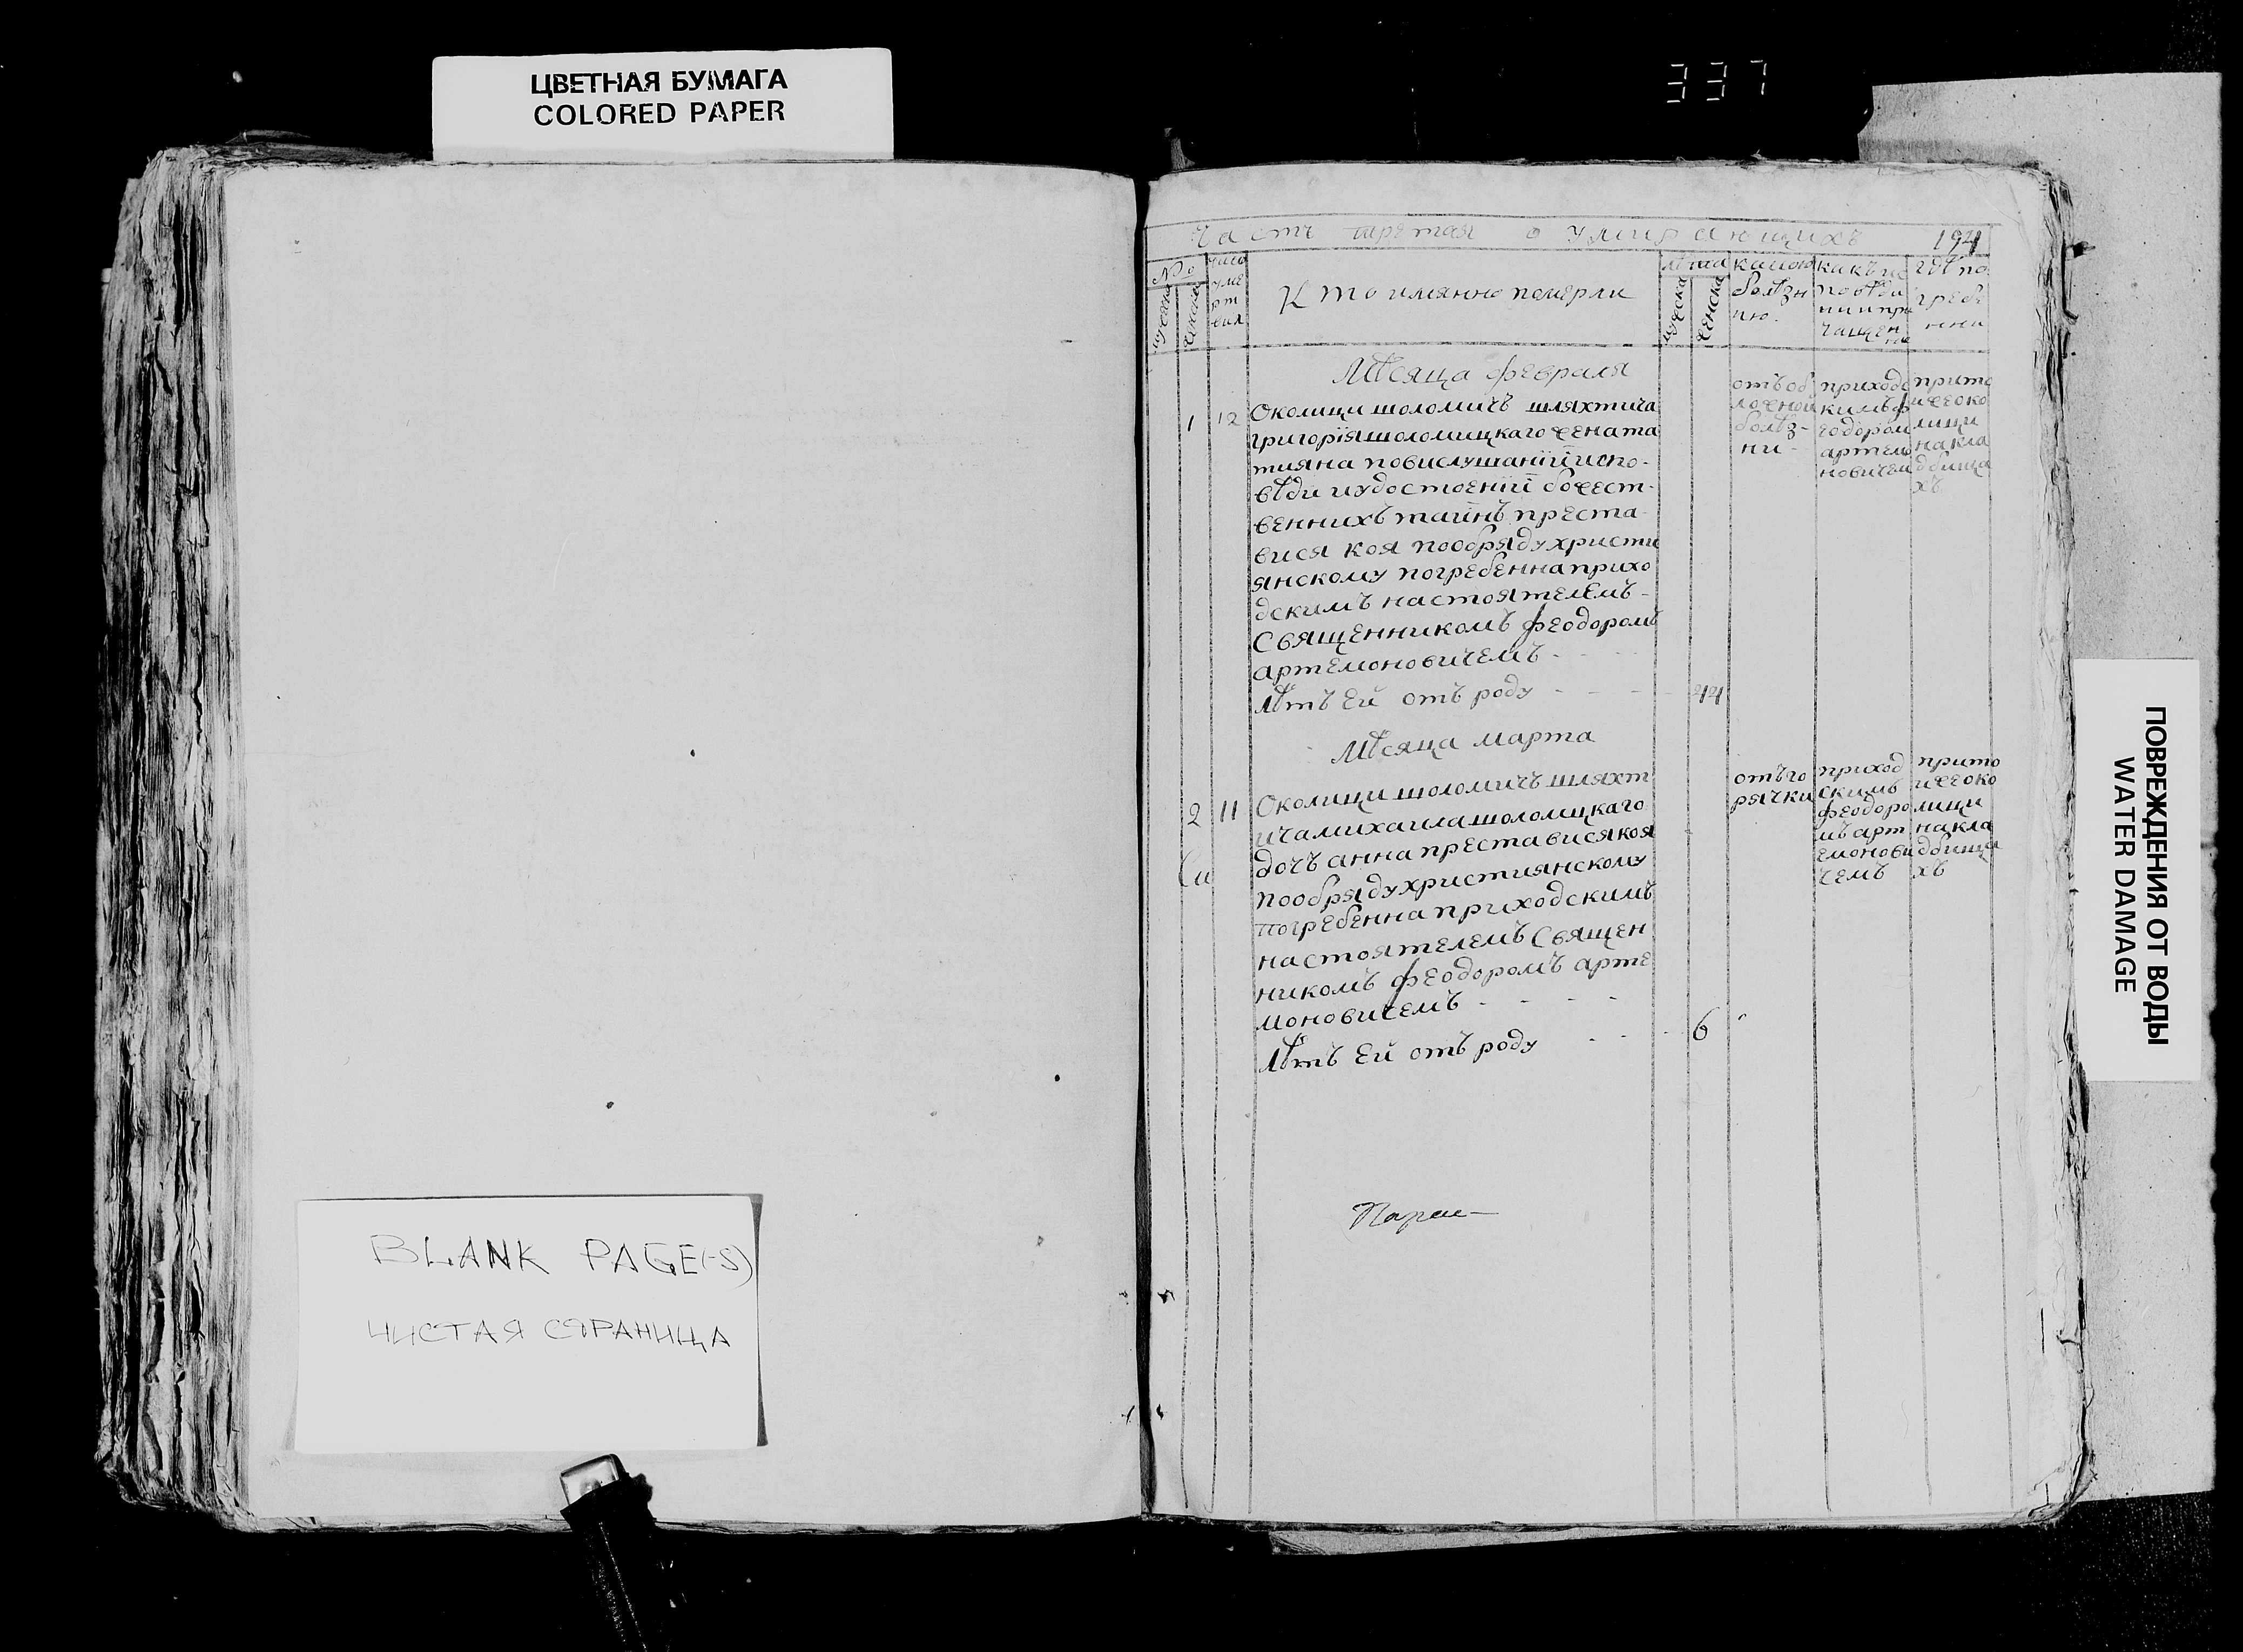 ЦВЕТНАЯ БУМАГА
COLORED PAPER
337
BLANK PAGE(-S)
ЧИСТАЯ СТРАНИЦА
Часть третая о умирающихъ
No
Кто имянно померли
какою
болѣзн
ию.
какъ ис
повѣди
ни и при
чащен
ни
гдѣ по
гребе
нни
Мѣсяца февраля
1 12
Околици шоломичъ шляхтича
григорія шоломицкаго жена та
тияна повислушаніи испо-
вѣди иудостоеніи божест-
веннихъ таинъ преста
вися коя пообряду христи
янскому погребенна прихо
дскимъ настоятелемъ-
Священникомъ феодоромъ
артемоновичемъ
лѣтъ ей отъ роду
44
отъ об
ложной
болѣз-
ни-
приходс
кимъ ф
еодором
артемо
новичем
прито
йже око
лици
накла
дбища
хъ
Мѣсяца марта
2 11
Околици шоломичъ шляхт
ича михаила шоломицкаго
дочъ анна преставися коя
пообряду християнскому
погребенна приходскимъ
настоятелемъ Священ
никомъ феодоромъ арте
моновичемъ
лѣтъ ей отъ роду
6
отъ го
рячки
приход
скимъ
феодоро
мъ арт
емонови
чемъ
прито
йже око
лици
накла
дбища
хъ
ПОВРЕЖДЕНИЯ ОТ ВОДЫ
WATER DAMAGE